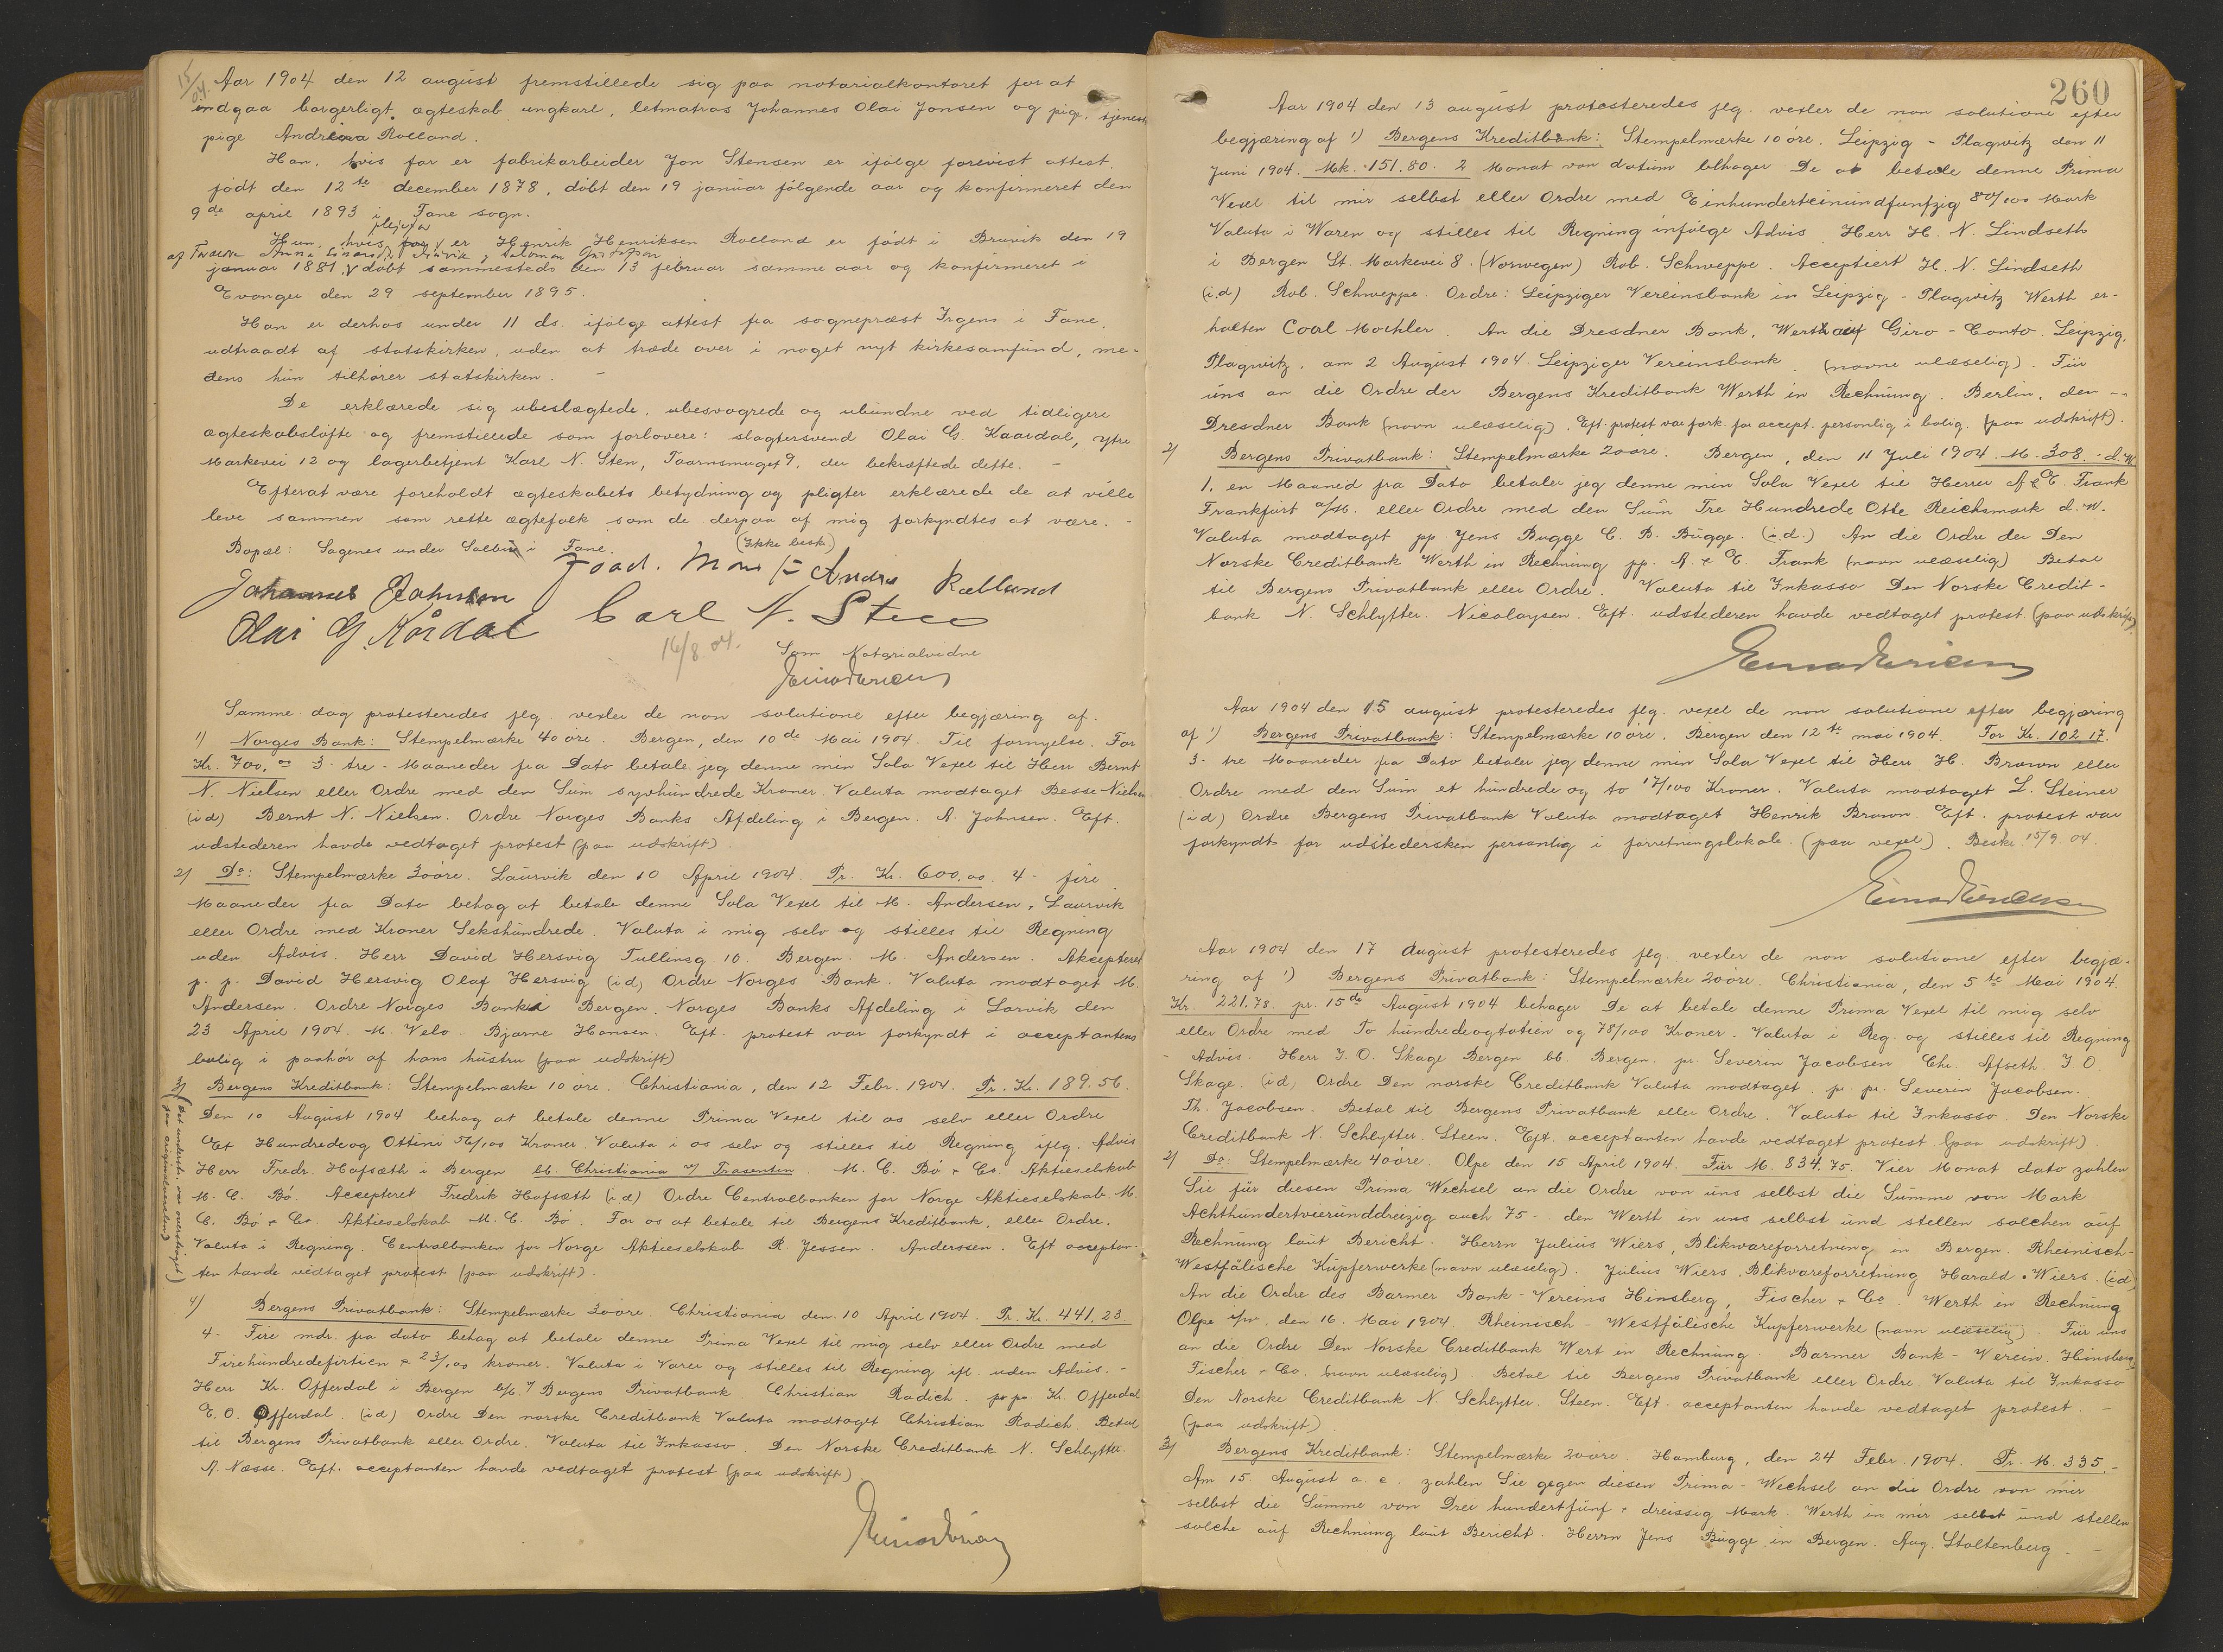 15/04.
Aar 1904 den 12 august fremstillede sig paa notarialkontoret for at
indgaa borgerligt ægteskab ungkarl, letmatros Johannes Olai Jonsen og pige, tjeneste
pige Andrea Rolland.
Han, hvis far er fabrikarbeider Jon Stensen er ifølge forevist attest,
født den 12te december 1878, døbt den 19 januar følgende aar og konfirmeret den
9de april 1893 i Fane sogn.
Hun, hvis plejefar er Henrik Henriksen Rolland er født i Bruvik den 19
januar 1881, døbt sammesteds den 13 februar samme aar og konfirmeret i
Evanger den 29 september 1895.
Han er derhos under 11 ds. ifølge attest fra sognepræst Irgens i Fane,
udtraadt af statskirken, uden at træde over i noget nyt kirkesamfund, me-
dens hun tilhører statskirken. –
De erklærede sig ubeslægtede, ubesvogrede og ubundne ved tidligere
ægteskabsløfte og fremstillede som forlovere: slagtersvend Olai G. Kaardal, ytre
Markevei 12 og lagerbetjent Karl N. Sten, Taarnsmuget 9, der bekræftede dette. –
Efterat være foreholdt ægteskabets betydning og pligter erklærede de at ville
leve sammen som rette ægtefolk som de derpaa af mig forkyndtes at være. –
Bopæl: Sagenes under Solbu i Fane. (Ikke besk.)
Johannes Johnsen Andrea Rolland
Olai G. Kårdal Carl N. Sten
16/8 04. Som Notarialvidne
Samme dag protesteredes flg. vexler de non solutione efter begjæring af.
1) Norges Bank: Stempelmærke 40 øre. Bergen, den 10de Mai 1904. Til fornyelse. For
Kr. 700,00 3 - tre - Maaneder fra Dato betale jeg denne min Sola Vexel til Herr Bernt
N. Nielsen eller Ordre med den Sum syvhundrede Kroner. Valuta modtaget Besse Nielsen
(id) Bernt N. Nielsen. Ordre Norges Banks Afdeling i Bergen. A. Johnsen. Eft.
udstederen havde vedtaget protest (paa udskrift).
2) Do: Stempelmærke 30 øre. Laurvik den 10 April 1904. Pr. Kr. 600.00. 4 - fire
Maaneder fra Dato behag at betale denne Sola Vexel til M. Andersen, Laurvik
eller Ordre med Kroner Sekshundrede. Valuta i mig selv og stilles til Regning
uden Advis. Herr David Hersvig Tullinsg. 10. Bergen. M. Andersen. Akcepteret
p. p. David Hersvig Olaf Hersvig (id) Ordre Norges Bank. Valuta modtaget M.
Andersen. Ordre Norges Bank i Bergen. Norges Banks Afdeling i Larvik den
23 April 1904. M. Velo. Bjarne Hansen. Eft. protest var forkyndt i acceptantens
bolig i paahør af hans hustru (paa udskrift)
3) Bergens Kreditbank: Stempelmærke 10 øre. Christiania, den 12 Febr. 1904. Pr. Kr. 189.56.
Den 10 August 1904 behag at betale denne Prima Vexel til os selv eller Ordre
Et Hundrede og Ottini 56/100 Kroner. Valuta i os selv og stilles til Regning iflg. Advis
Herr Fredr. Hofsæth i Bergen bb. Christiania v/ Trasenten. M. C. Bø & Co. Aktieselskab
M. C. Bø. Accepteret Fredrik Hofsæth (id) Ordre Centralbanken for Norge Aktieselskab. M.
C. Bø & Co. Aktieselskab M. C. Bø. For os at betale til Bergens Kreditbank, eller Ordre.
Valuta i Regning. Centralbanken for Norge Aktieselskab R. Jessen. Anderssen. Eft acceptan-
ten havde vedtaget protest (paa udskrift).
(det understr. var overstrøget)
(paa originalvexlen)
4) Bergens Privatbank: Stempelmærke 30 øre. Christiania den 10 April 1904. Pr. Kr. 441,23.
4 - Fire mdr. fra dato behag at betale denne Prima Vexel til mig selv eller Ordre med
Firehundredefirtien & 23/100 kroner. Valuta i Varer og stilles til Regning ifl. uden Advis. -
Herr Kr. Offerdal i Bergen b/b. v/ Bergens Privatbank. Christian Radich. pr pr Kr. Offerdal
E. O. Offerdal. (id) Ordre Den norske Creditbank Valuta modtaget Christian Radich Betal
til Bergens Privatbank eller Ordre. Valuta til Inkasso. Den Norske Creditbank N. Schlytter.
A. Næsse. Eft. acceptanten havde vedtaget protest (paa udskrift)
260
Aar 1904 den 13 august protesteredes flg. vexler de non solutione efter
begjæring af 1) Bergens Kreditbank: Stempelmærke 10 øre. Leipzig - Plagwitz den 11
Juni 1904. Mk. 151.80. 2 Monat von datum behager De at betale denne Prima
Vexel til mir selbst eller Ordre med Einhunderteinundfunfzig 80/100 Mark
Valuta i Waren og stilles til Regning infølge Advis. Herr H. N. Lindseth
i Bergen St. Markevei 8. (Norwegen) Rob. Schweppe. Acceptiert H. N. Lindseth
(i.d) Rob. Schweppe. Ordre: Leipziger Vereinsbank in Leipzig - Plagwitz Werth er-
halten Carl Mochler. An die Dresdner Bank, Werth auf Giro - Conto. Leipzig,
Plagwitz, am 2 August 1904. Leipziger Vereinsbank. (navne ulæselig). Für
uns an die Ordre der Bergens Kreditbank Werth in Rechnung. Berlin, den --
Dresdner Bank (navn ulæselig). Eft. protest var fork. for accept. personlig i bolig. (paa udskrift).
2) Bergens Privatbank: Stempelmærke 20 øre. Bergen, den 11 Juli 1904. M. 308. - d. W.
1. en Maaned fra Dato betaler jeg denne min Sola Vexel til Herrer A & E. Frank
Frankfurt a/M. eller Ordre med den Sum Tre Hundrede Otte Reichsmark d. W.
Valuta modtaget pp. Jens Bugge C. B. Bugge. (i.d.) An die Ordre der Den
Norske Creditbank Werth in Rechnung pp. A. & E. Frank (navn ulæselig) Betal
til Bergens Privatbank eller Ordre. Valuta til Inkasso Den Norske Credit-
bank N. Schlytter. Nicolaysen. Eft. udstederen havde vedtaget protest. (paa udskrift)
Aar 1904 den 15 august protesteredes flg. vexel de non solutione efter begjæring
af 1) Bergens Privatbank: Stempelmærke 10 øre. Bergen den 12te mai 1904. For Kr. 102.17.
3 - tre Maaneder fra Dato betaler jeg denne min Sola Vexel til Herr H. Brown eller
Ordre med den Sum et hundrede og to 17/100 Kroner. Valuta modtaget L. Steiner
(id) Ordre Bergens Privatbank Valuta modtaget Henrik Brown. Eft. protest var
forkyndt for udstedersken personlig i forretningslokale. (paa vexel). Besk. 15/9 04.
Aar 1904 den 17 August protesteredes flg. vexler de non solutione efter begjæ-
ring af 1) Bergens Privatbank: Stempelmærke 20 øre. Christiania, den 5te Mai 1904.
Kr. 221.78. pr. 15de August 1904 behager De at betale denne Prima Vexel til mig selv
eller Ordre med To hundredeogtotien og 78/100 Kroner. Valuta i Reg. og stilles til Regning
- Advis. Herr J. O. Skage Bergen bb. Bergen. pr. Severin Jacobsen Chr. Afseth. J. O.
Skage. (id) Ordre Den norske Creditbank Valuta modtaget. pr. pr. Severin Jacobsen.
Th. Jacobsen. Betal til Bergens Privatbank eller Ordre. Valuta til Inkasso. Den Norske
Creditbank N. Schlytter. Steen. Eft. acceptanten havde vedtaget protest. (paa udskrift).
2) Do: Stempelmærke 40 øre. Olpe den 15 April 1904. Für M. 834.75. Vier Monat dato zahlen
Sie für diesen Prima Wechsel an die Ordre von uns selbst die Summe von Mark
Achthundertvierunddreizig auch 75 - den Werth in uns selbst und stellen solchen auf
Rechnung laut Bericht. Herrn Julius Wiers, Blikvareforretning in Bergen. Rheinisch-
Westfälische Kupferwerke (navn ulæselig). Julius Wiers. Blikvareforretning Harald Wiers. (id)
An die Ordre des Barmer Bank - Vereins Hinsberg, Fischer & Co. Werth in Rechnung
Olpe i/w. den 16. Mai 1904. Rheinisch - Westfälische Kupferwerke (navn ulæselig). Für uns
an die Ordre Den Norske Creditbank Wert in Rechnung. Barmer Bank - Verein. Hinsberg
Fischer & Co. (navn ulæselig). Betal til Bergens Privatbank eller Ordre. Valuta til Inkasso
Den Norske Creditbank N. Schlytter. Steen. Eft. acceptanten havde vedtaget protest. -
(paa udskrift)
3) Bergens Kreditbank: Stempelmærke 20 øre. Hamburg, den 24 Febr. 1904. Pr. M. 335.-
Am 15. August a. c. zahlen Sie gegen diesen Prima - Wechsel an die Ordre von mir
selbst die Summe von Drei hundertfünf & dreissig Mark. Werth in mir selbst und stellen
solche auf Rechnung laut Bericht. Herrn Jens Bugge in Bergen. Aug. Stoltenberg. -